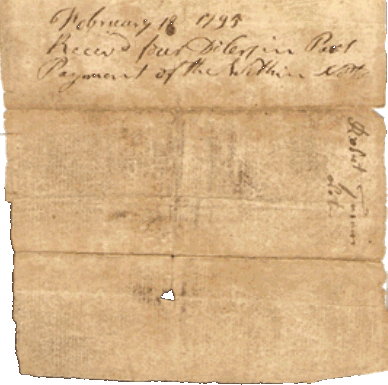 February 18 1795
Receivd four Dolers in Part
Payment of the Within Note
Robert
Note